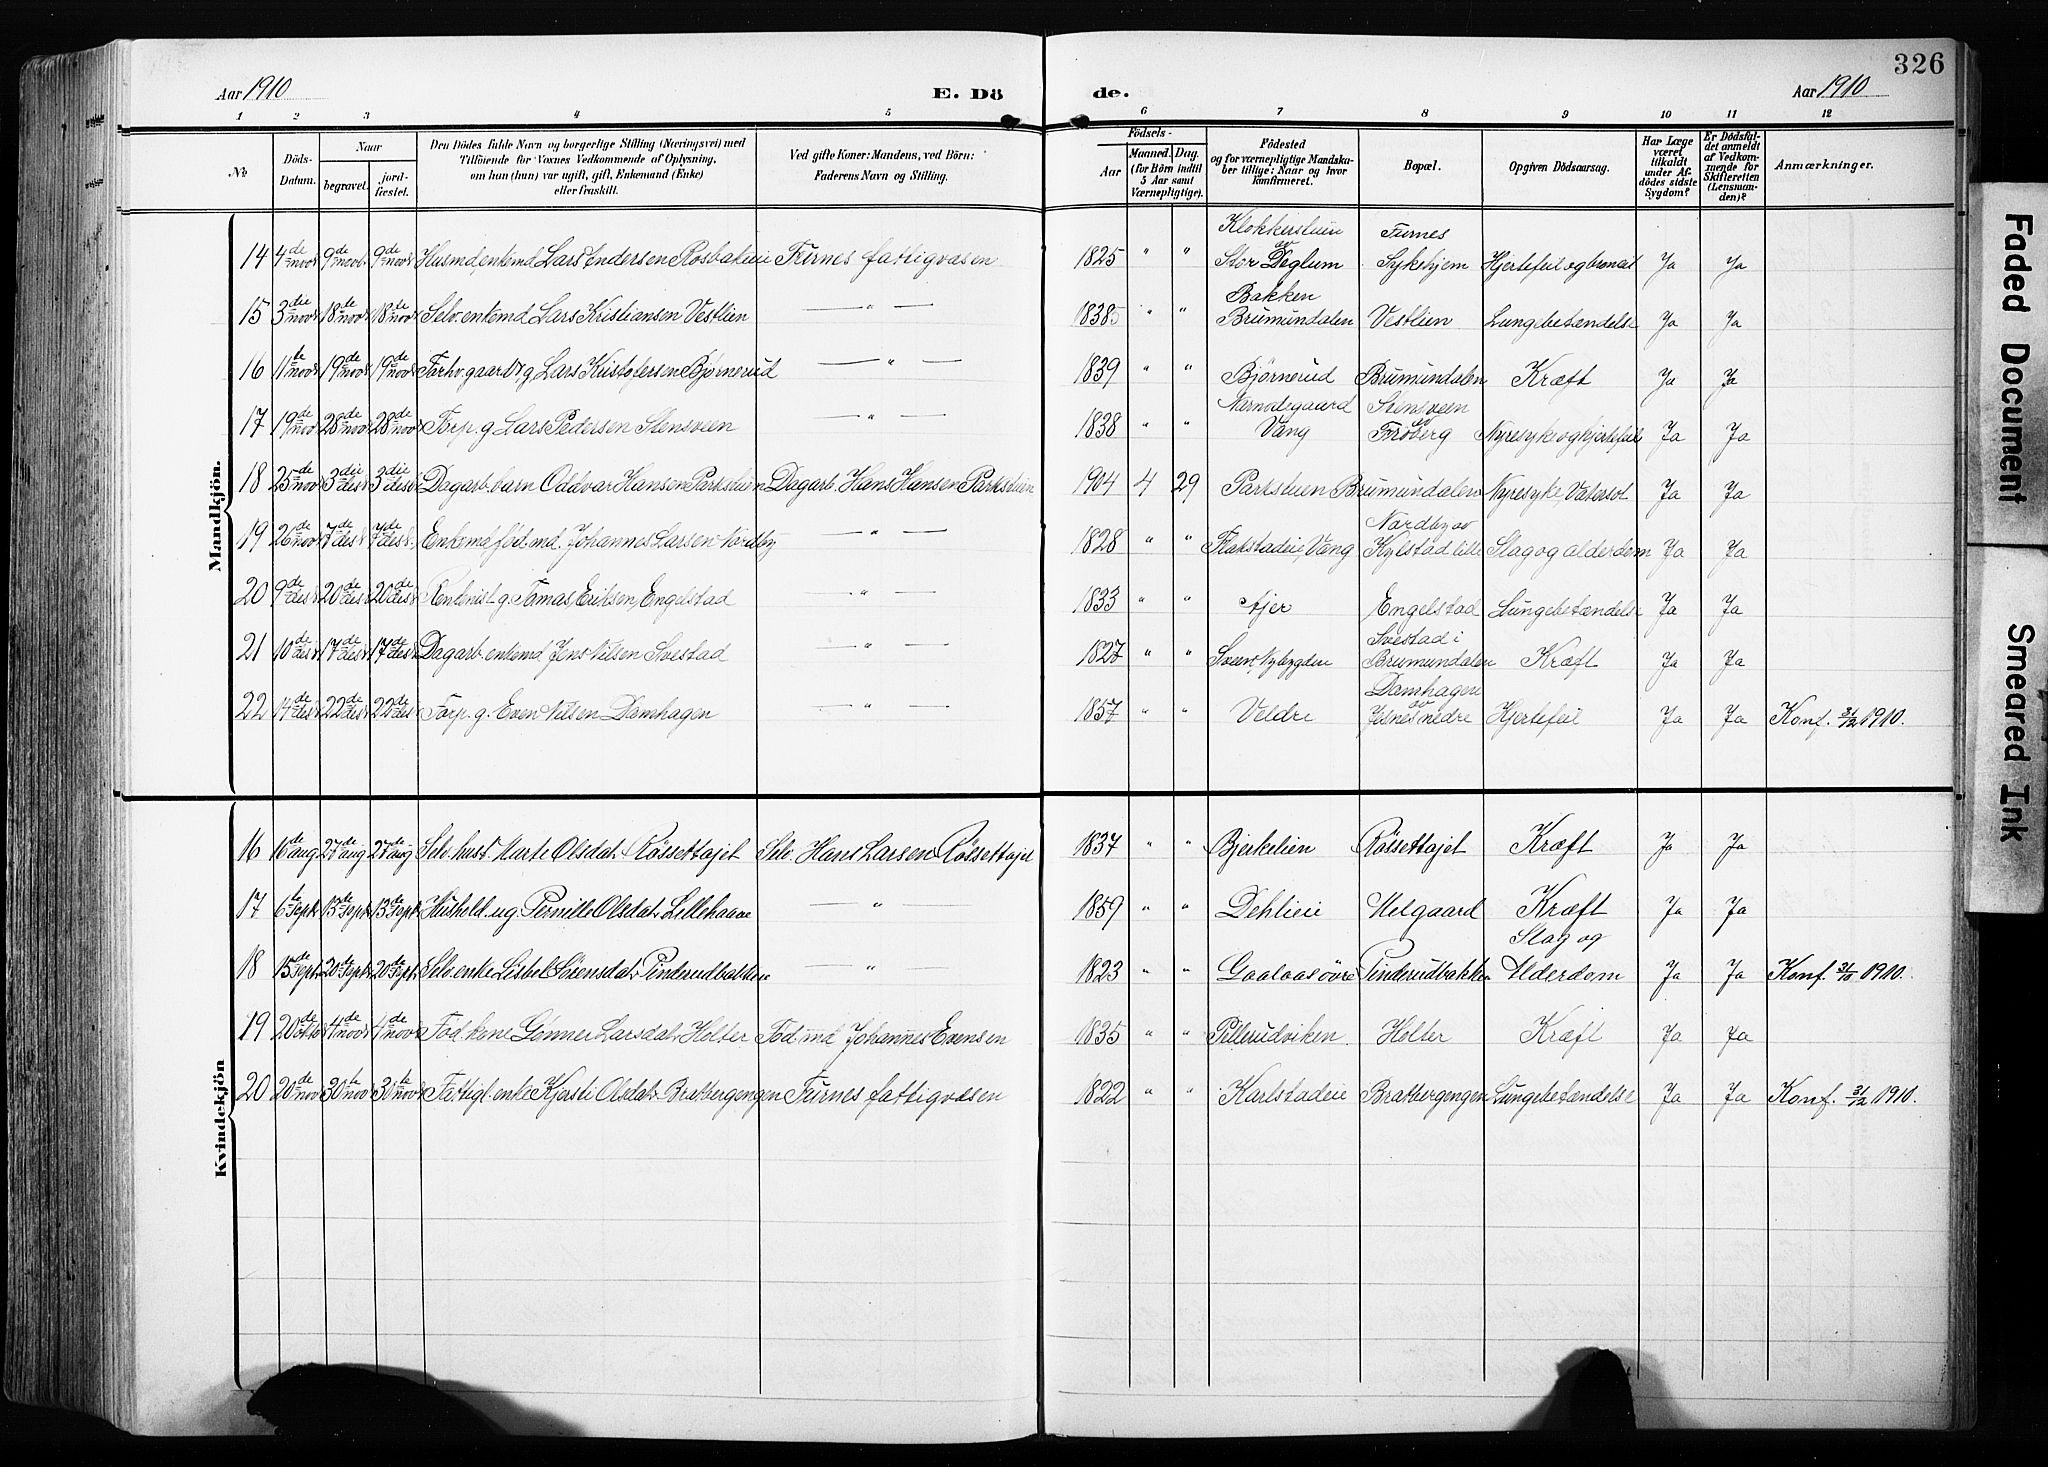 326
Aar 1910
E. Dö
de.
Aar 1910
1 2 3 4 5 6 7 8 9 10 11 12
No
Döds-Datum.
Naar
begravet.
jord-fæstet.
Den Dödes fulde Navn og borgerlige Stilling (Næringsvei) med
Tilföiende for Voxnes Vedkommende af Oplysning,
om hun (hun) var ugift, gift, Enkemand (Enke)
eller fraskilt.
Ved gifte Koner: Mandens, ved Börn:
Faderens Navn og Stilling.
Födsels-
Aar
Maaned. Dag.
(for Börn indtil
5 Aar samt
Værnepligtige).
Födested
og for værnepligtige Mandska-
ber tillige: Naar og hvor
konfirmeret.
Bopæl.
Opgiven Dödsaarsag.
Har Læge
været
tilkaldt
under Af-
dödes sidste
Sygdom?
Er Dödsfal-
det anmeldt
af Vedkom-
mende for
Skifteretten
(Lensman-
den)?
Anmærkninger.
Mandkjön.
14 4de nov 9de nov 9de nov Husmd, enkemd Lars Andersen Rosbakeie Furnes fattigvæsen 1825 " " Klokkerstuen av Stor Deglum Furnes Sykehjem Hjertefeil og Ja Ja
15 3die nov 18de nov 18de nov Selv. enkemd Lars Kristiansen Vestlien — " — 1838 " " Bakken Brumundalen Vestlien Lungebetændelse Ja Ja
16 11te nov 19de nov 19de nov Forhv. gaardbr, g. Lars Kristofersen Bjørnerud — " — 1839 " " Bjørnerud Brumundalen Kræft Ja Ja
17 19de nov 28de nov 28de nov Forp. g. Lars Pedersen Stensveen — " — 1838 " " Vang Stensveen av Frøberg Nyresyke og hjertefeil Ja Ja
18 25de nov 3die des 3die des Dagarb. barn Oddvar Hansen Parkstuen Dagarb. Hans Hansen Parkstuen 1904 4 29 Parkstuen Brumundalen Nyresyke, Vatersot Ja Ja
19 26de nov 7de des 7de des Enkemd, fød.md. Johannes Larsen Nordby — " — 1828 " " Flakstadeie, Vang Nordby av Kylstad lille Slag og alderdom Ja Ja
20 9de des 20de des 20de des Rentenist g. Tomas Eriksen Engelstad — " — 1833 " " Ajer Engelstad Lungebetændelse Ja Ja
21 10de des 17de des 17de des Dagarb. enkemd Jens Nilsen Svestad — " — 1827 " " Sveen, Nybygden Svestad i Brumundalen Kræft Ja Ja
22 14de des 22de des 22de des Forp. g. Even Nilsen Damhagen — " — 1857 " " Veldre Damhagen av Jesnes nedre Hjertefeil Ja Ja Konf. 31/12 1910.
Kvindekjön
16 16de aug 27de aug 27de aug Selv. hust. Marte Olsdat. Røssettajet Selv. Hans Larsen Røssettajet 1837 " " Bjerkelien Røssettajet Kræft Ja Ja
17 6te Sept 13de Sept 13de Sept Hushold. ug. Pernille Olsdat. Lillehaave — " — 1859 " " Dehlieie Helgaard Kræft Ja Ja
18 15de Sept 20de Sept 20de Sept Selv. enke Lisbet Sørensdat. Pinderudbakken — " — 1823 " " Gaalaas øvre Pinderudbakken Slag og Alderdom Ja Ja Konf. 31/10 1910.
19 20de okto 4de nov 4de nov Fød.kone Gønner Larsdat. Holter Fød.md Johannes Evensen 1835 " " Pellerudviken. Holter Kræft Ja Ja
20 20de nov 30te nov 30te nov Fattigl. enke Kjersti Olsdat. Bratbergengen Furnes fattigvæsen 1822 " " Karlstadeie Bratbergengen Lungebetændelse Ja Ja Konf. 31/12 1910.
Faded Document
Smeared Ink